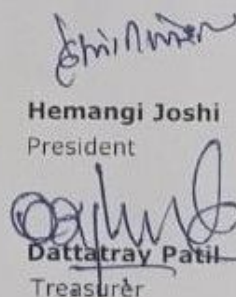 Hemangi Joshi
President
Dattatray Patil
Treasurer